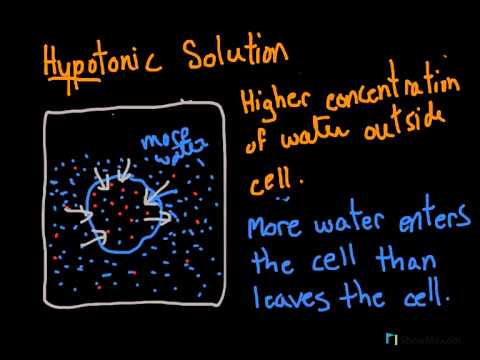 Hypotonic Solution
Higher concentration
of water outside
cell.
more
water
More water enters
the cell than
leaves the cell.
ShowMe.com